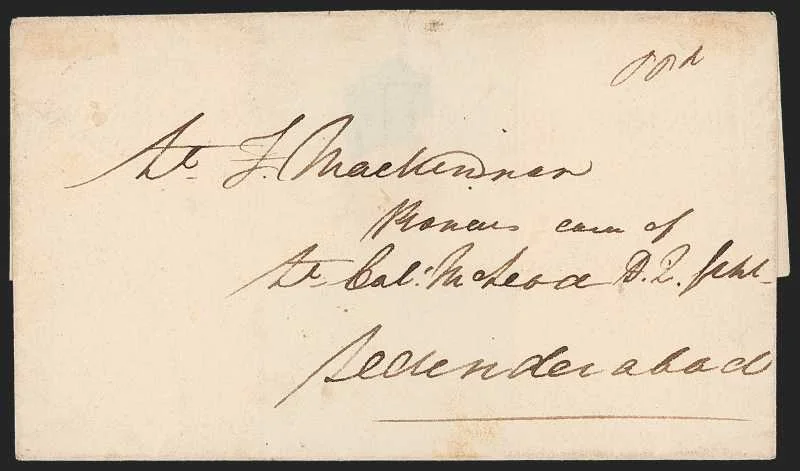 Pd
Lt. F. Mackinnon
Pioneers care of
Lt. Col. McLeod D. Q.
Secunderabad